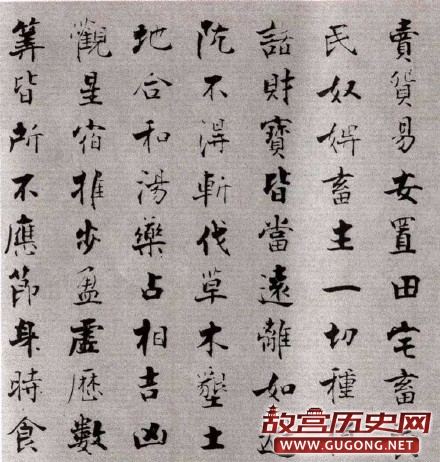 賣貿易安置田宅畜
民奴婢畜生一切種
諸財寶皆當遠離如
阬不得斬伐草木墾土
地合和湯藥占相吉凶
觀星宿推步盈虛歷數
筭皆所不應節身時食
故宫历史网
WWW.GUGONG.NET